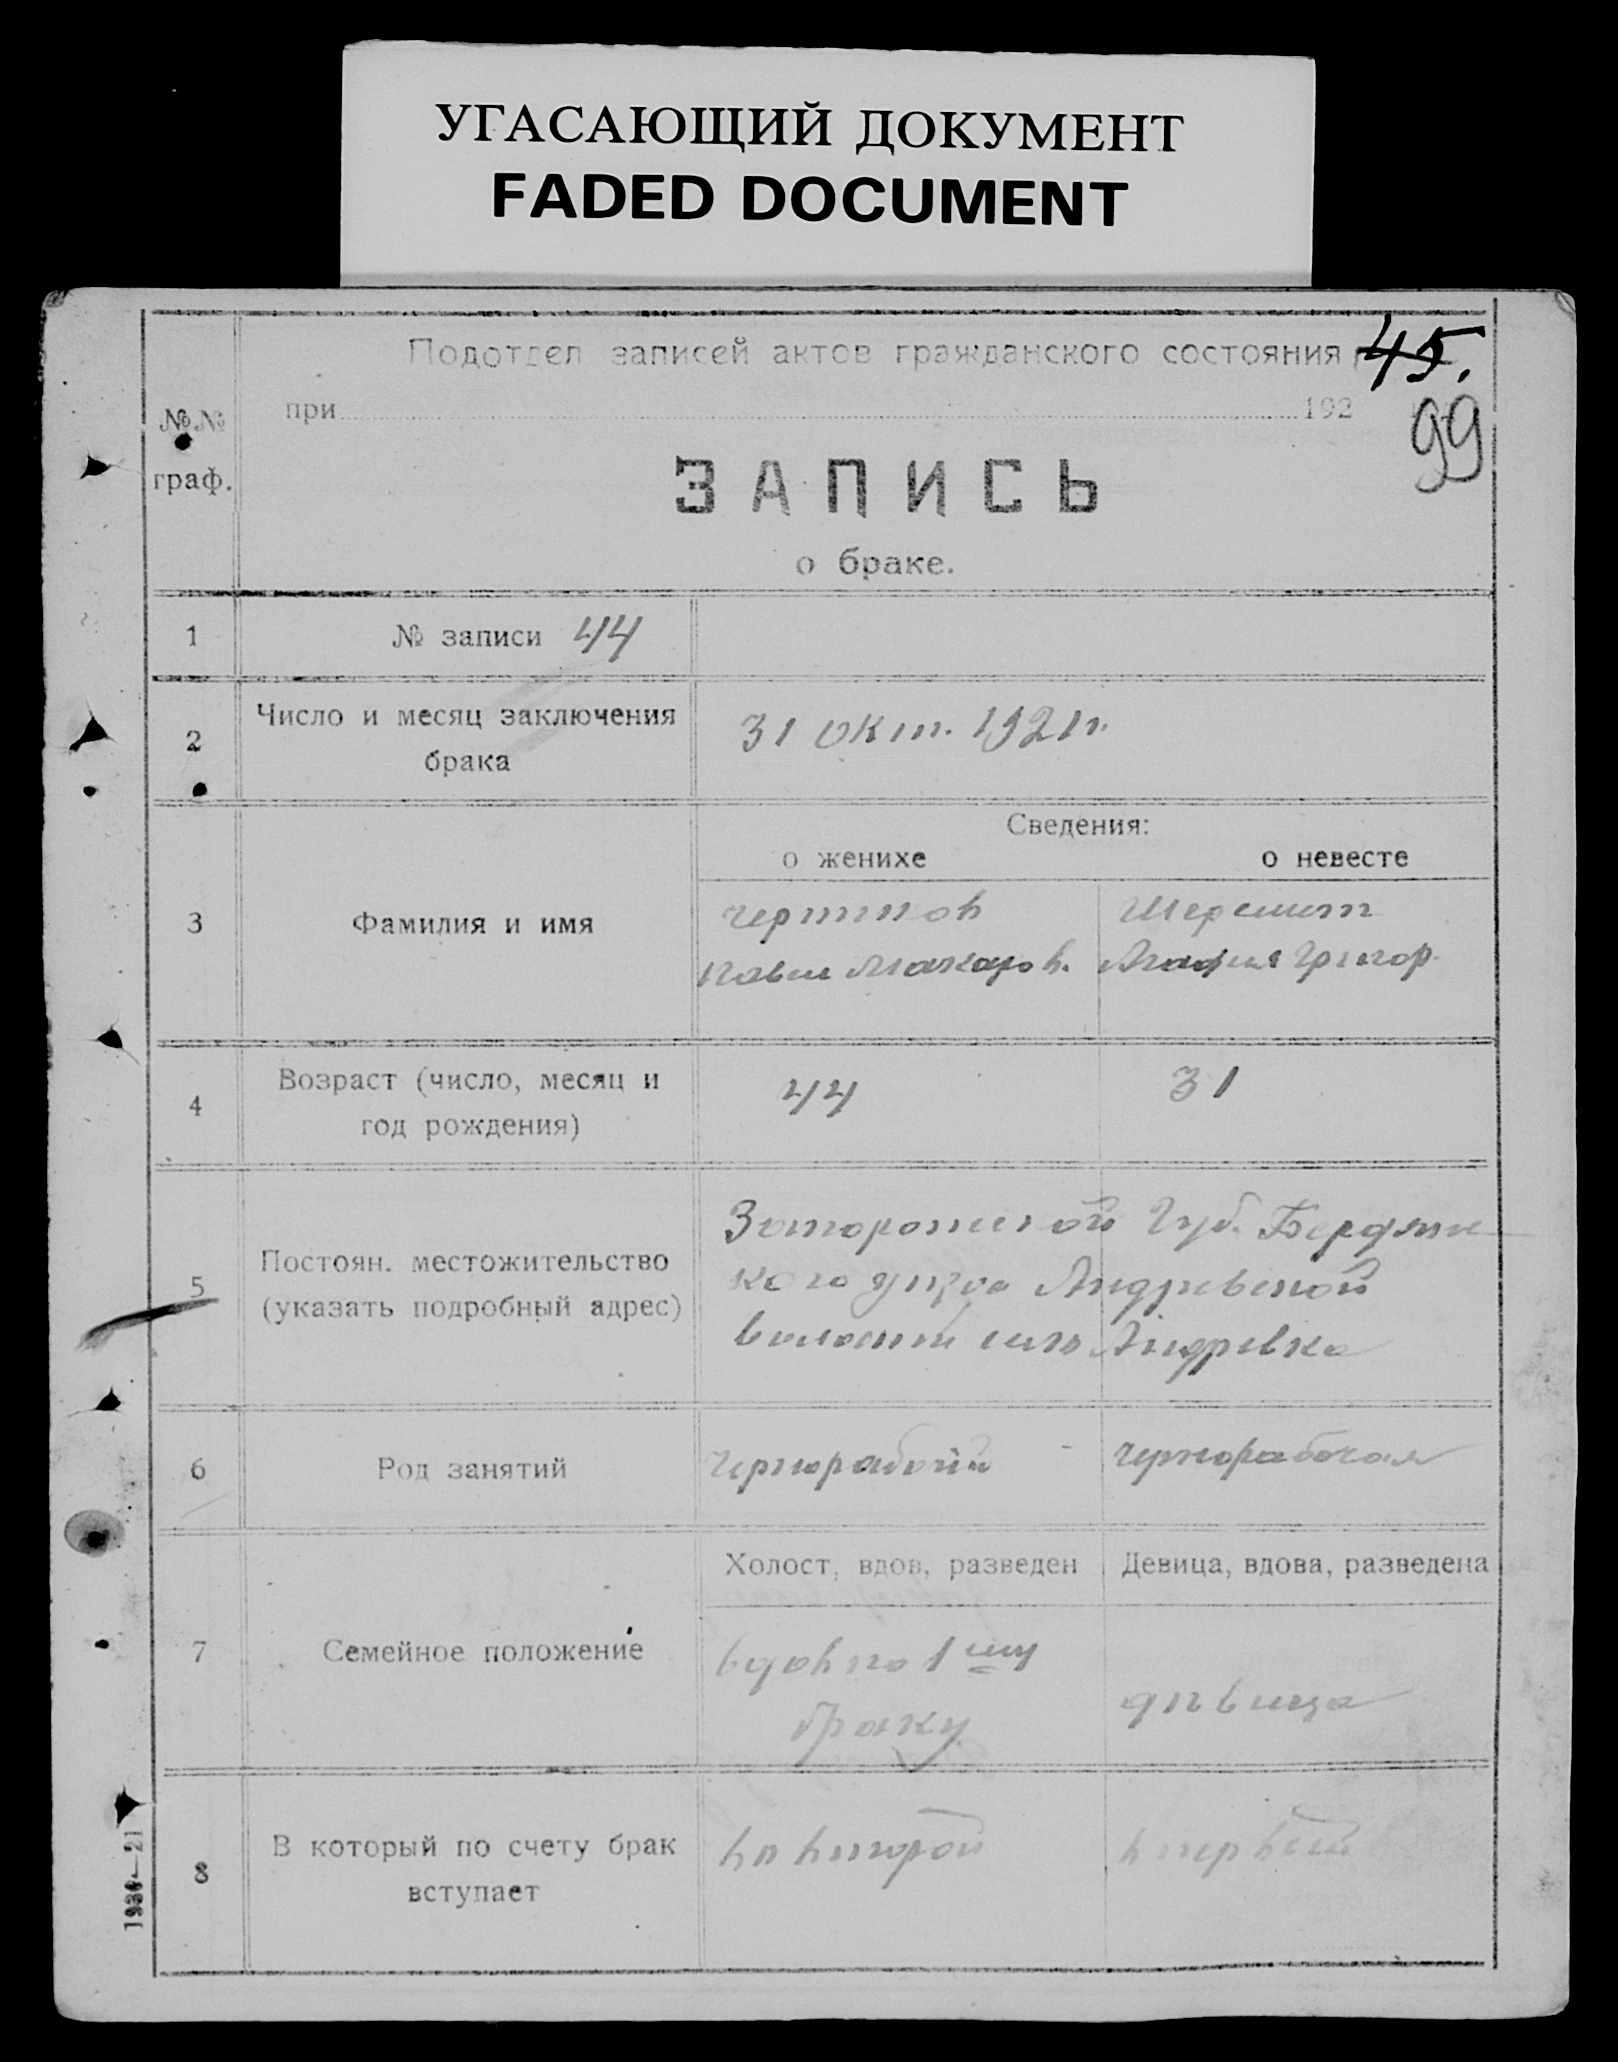 УГАСАЮЩИЙ ДОКУМЕНТ
FADED DOCUMENT
Подотдел записей актов гражданского состояния 45.
при 192
99
№№
граф.
ЗАПИСЬ
о браке.
1 № записи 44
2 Число и месяц заключения
брака
31 окт. 1921 г.
Сведения:
о женихе о невесте
3 Фамилия и имя
Шеремет
Макаров. Григор.
4 Возраст (число, месяц и
год рождения)
44 31
5 Постоян. местожительство
(указать подробный адрес)
Губ. Бердян
кого
Андревка
6 Род занятий
чернорабочий чернорабочая
7 Семейное положение
Холост, вдов, разведен Девица, вдова, разведена
вдов по 1 му
браку
девица
8 В который по счету брак
вступает
во второй
в первый